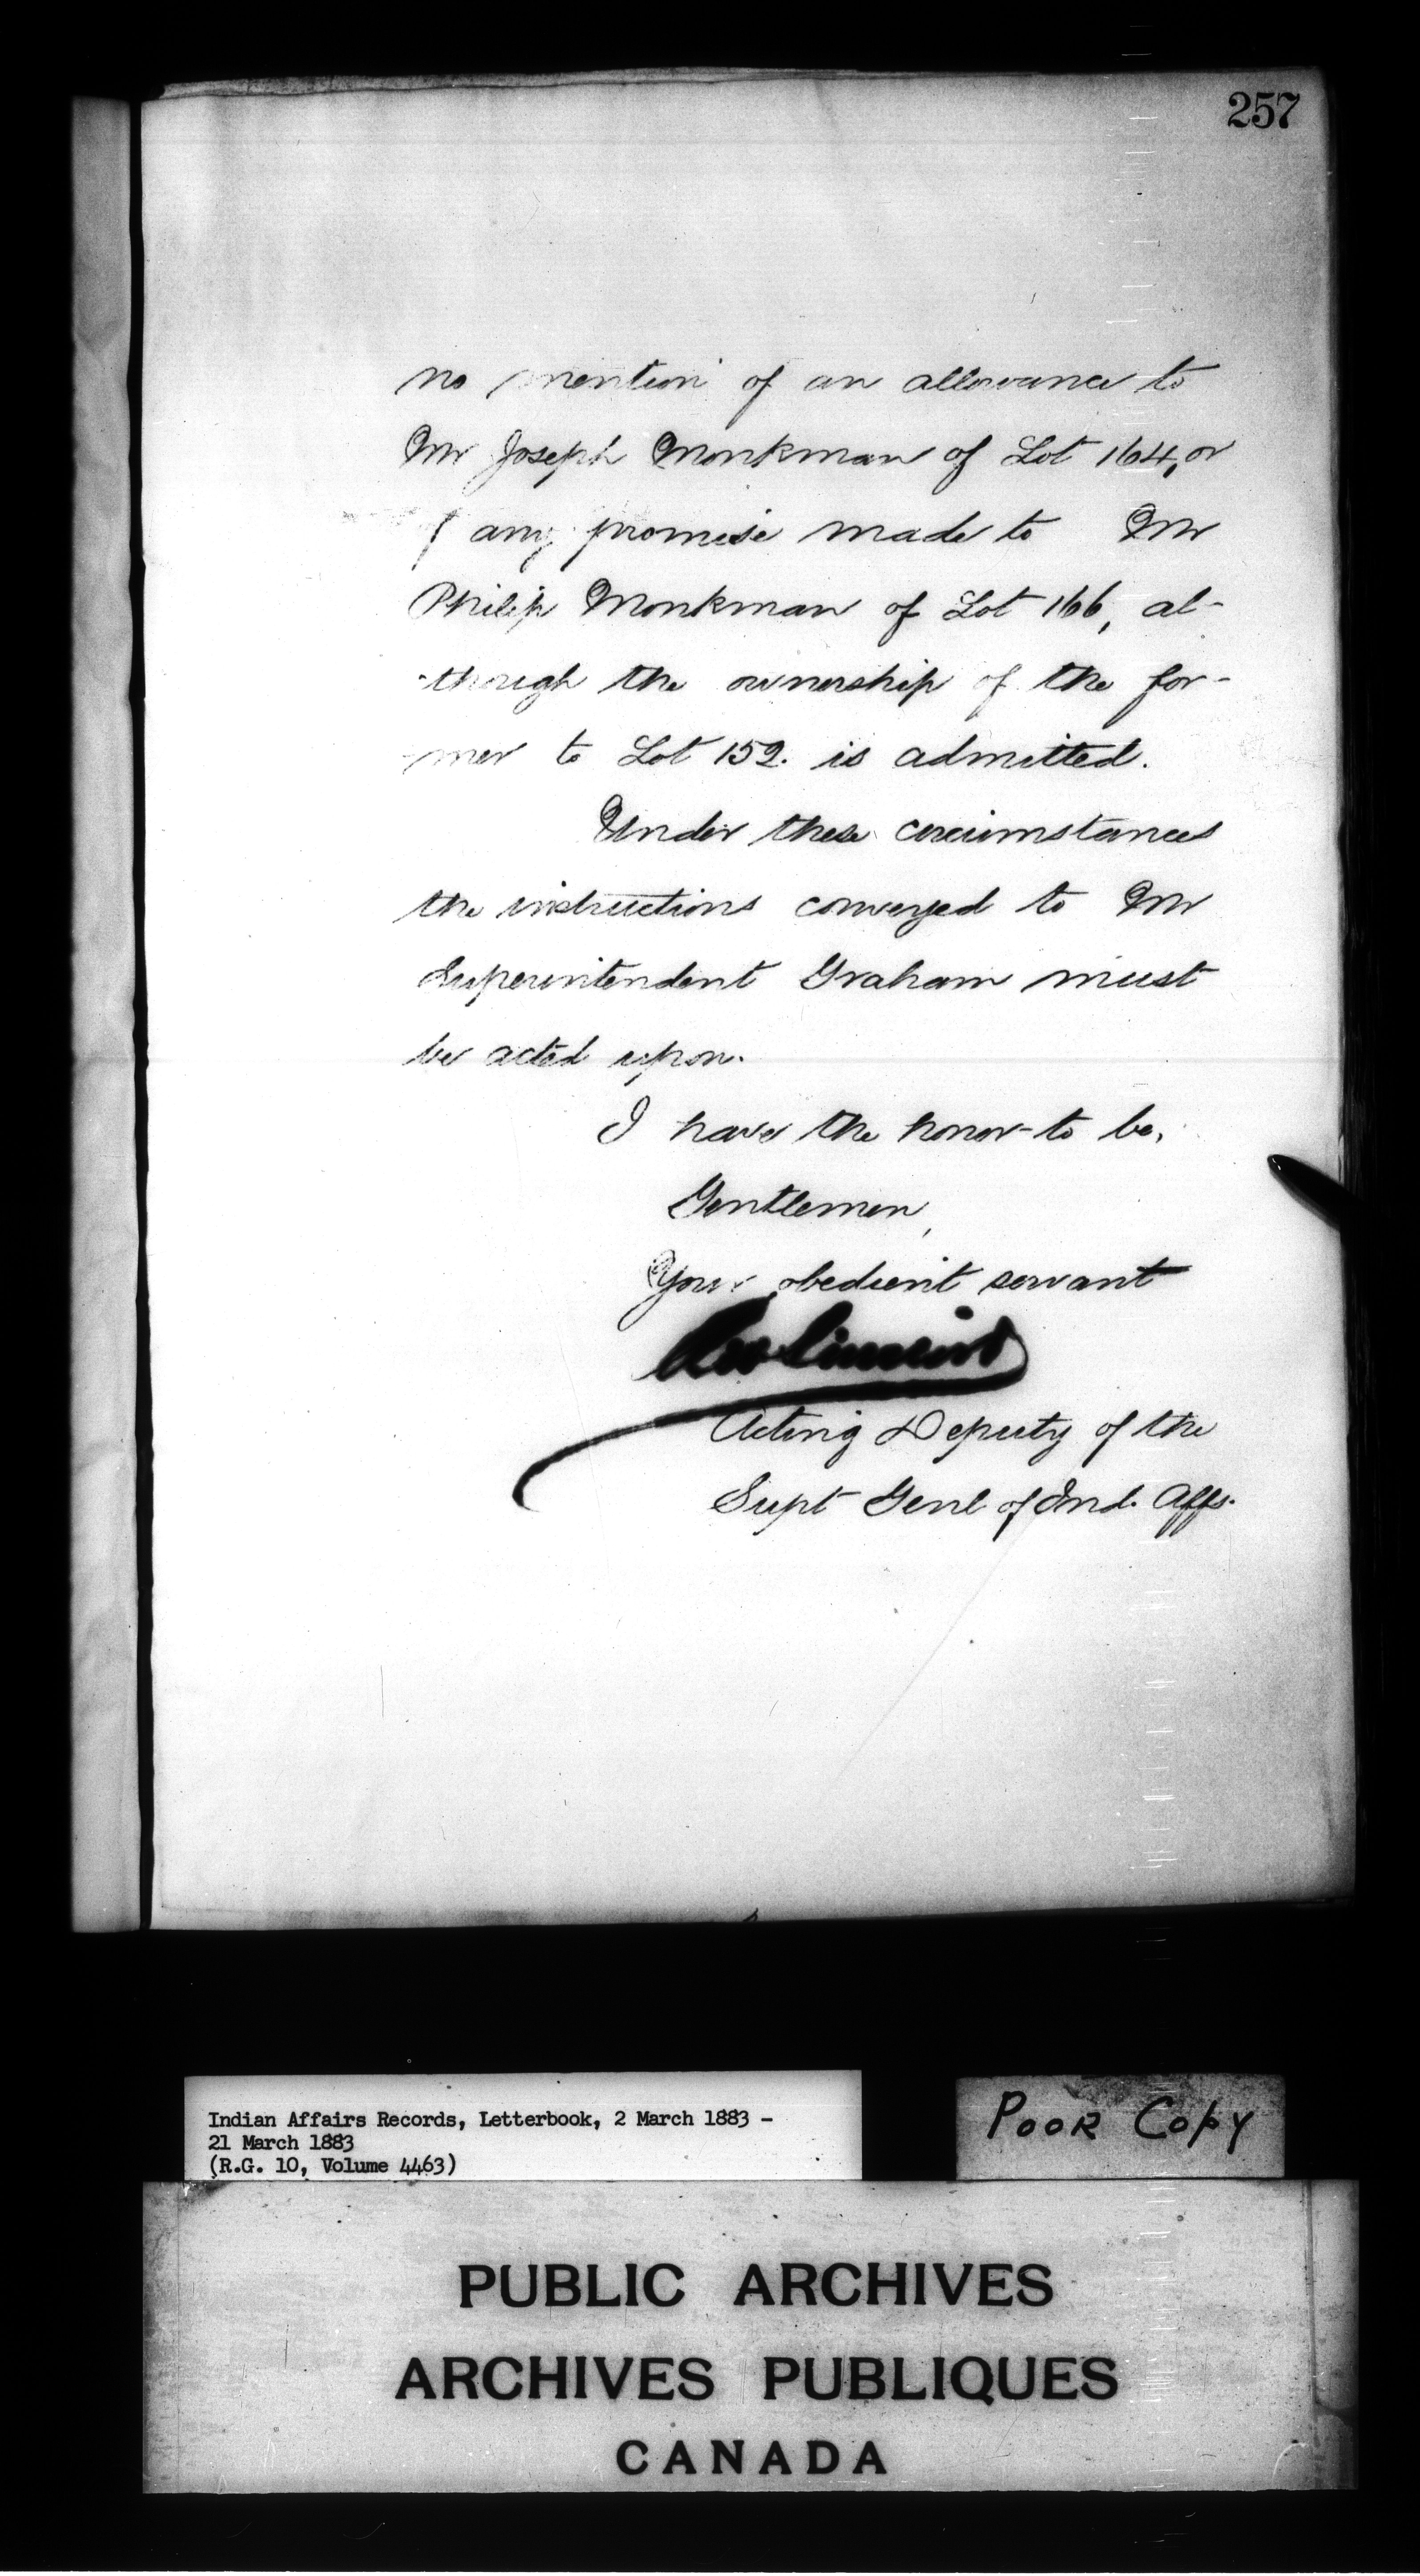 257
no mention of an allowance to
Mr Joseph Monkman of Lot 164, or
f any promise made to Mr
Philip Monkman of Lot 166, al-
-though the ownership of the for-
-mer to Lot 152. is admitted.
Under these circumstances
the instructions conveyed to Mr
Superintendent Graham must
be acted upon.
I have the honor to be,
Gentlemen,
Your obedient servant
Acting Deputy of the
Supt Genl of Ind. Affs.
Indian Affairs Records, Letterbook, 2 March 1883 -
21 March 1883
(R.G. 10, Volume 4463)
POOR COPY
PUBLIC ARCHIVES
ARCHIVES PUBLIQUES
CANADA